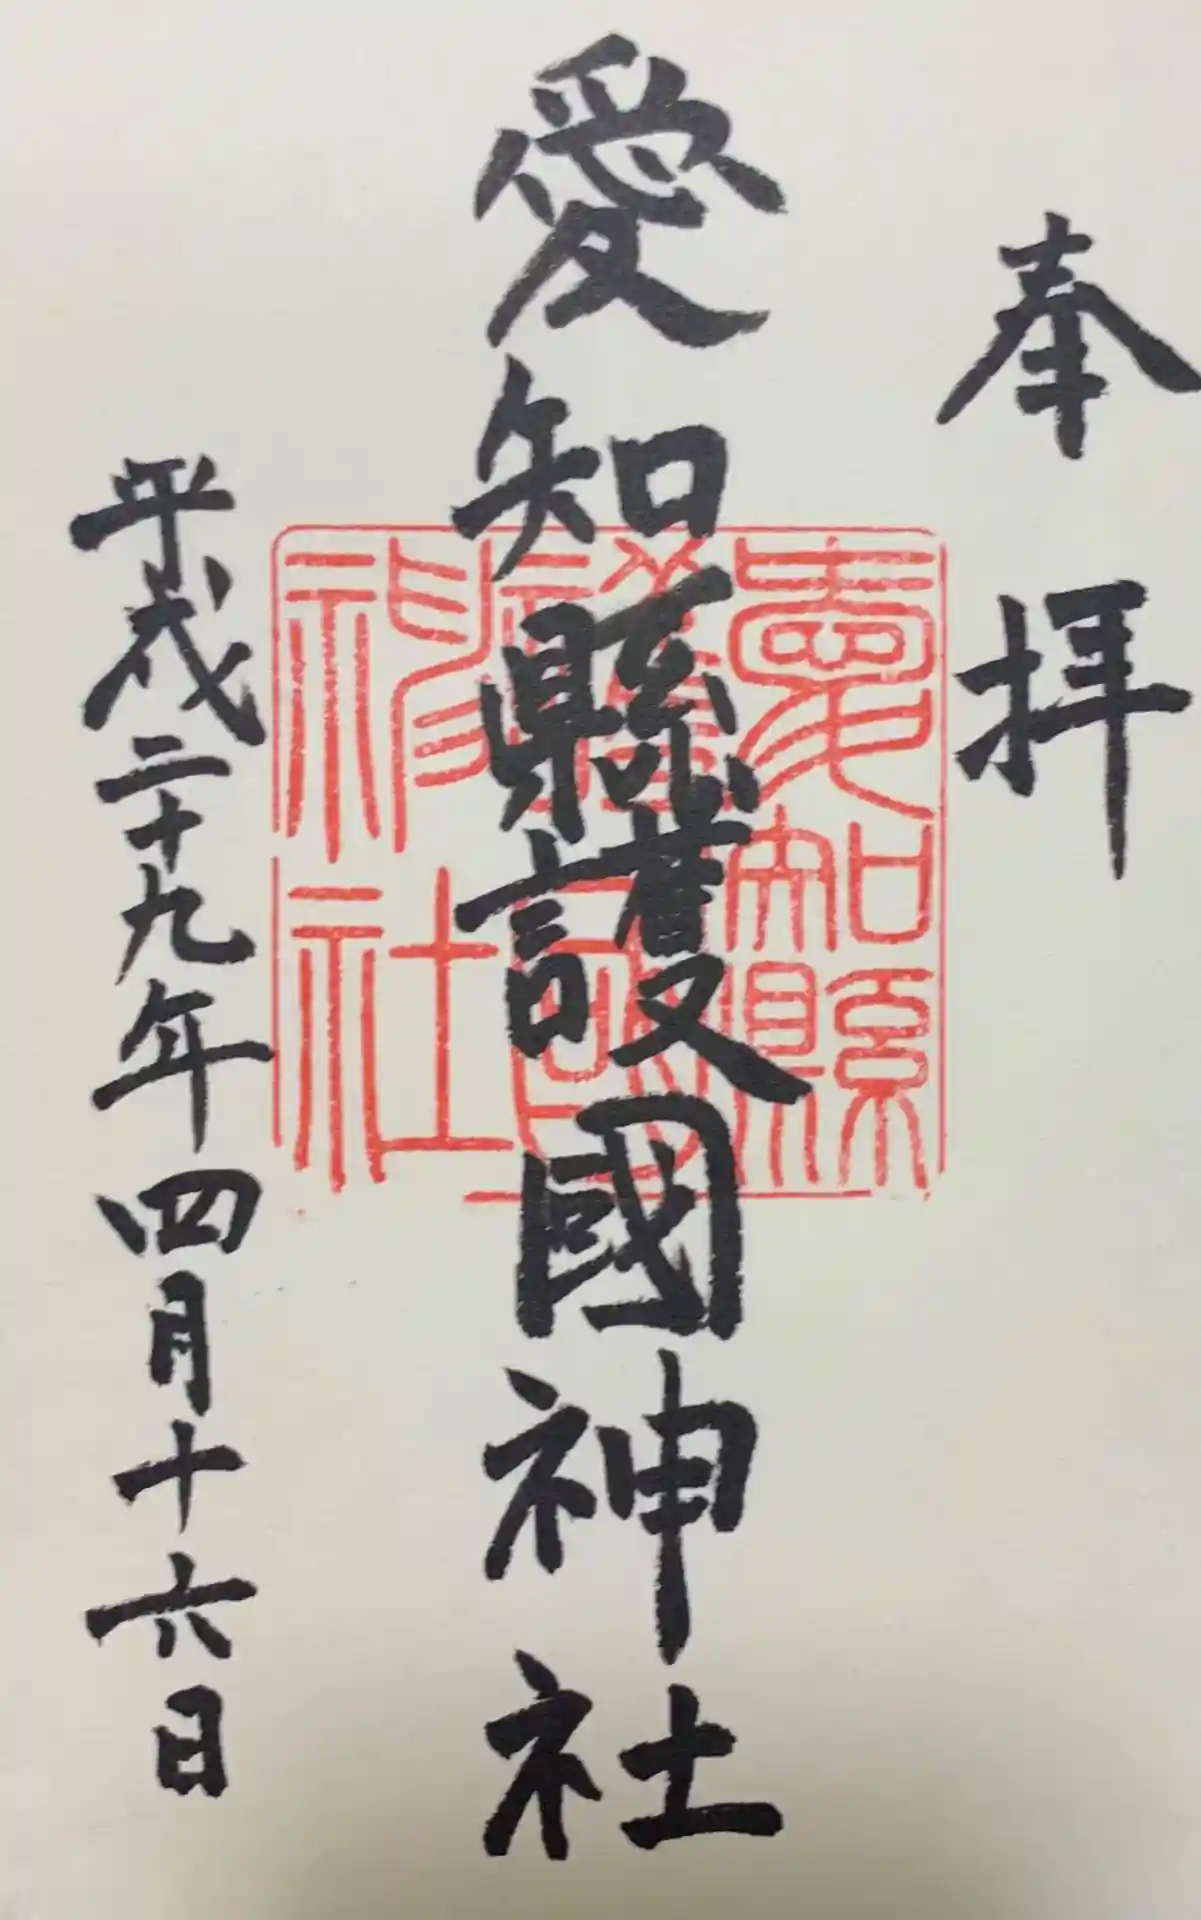 奉拝
愛知縣護國神社
愛知縣
護國
神社
平成二十九年四月十六日